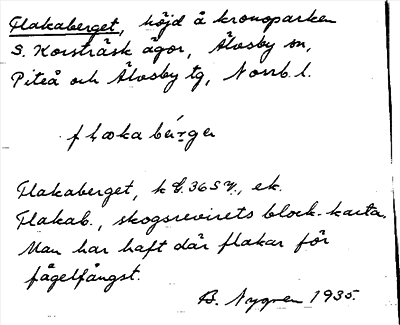 Flakaberget, höjd å kronoparken
S. Korsträsk ägor, Älvsby sn,
Piteå och Älvsby tg, Norrb. l.
Flakaberget, k 36 S
Flakab., skogsrevirets block-karta.
Man har haft där flakar för
fågelfångst.
B. Nygren 1935.